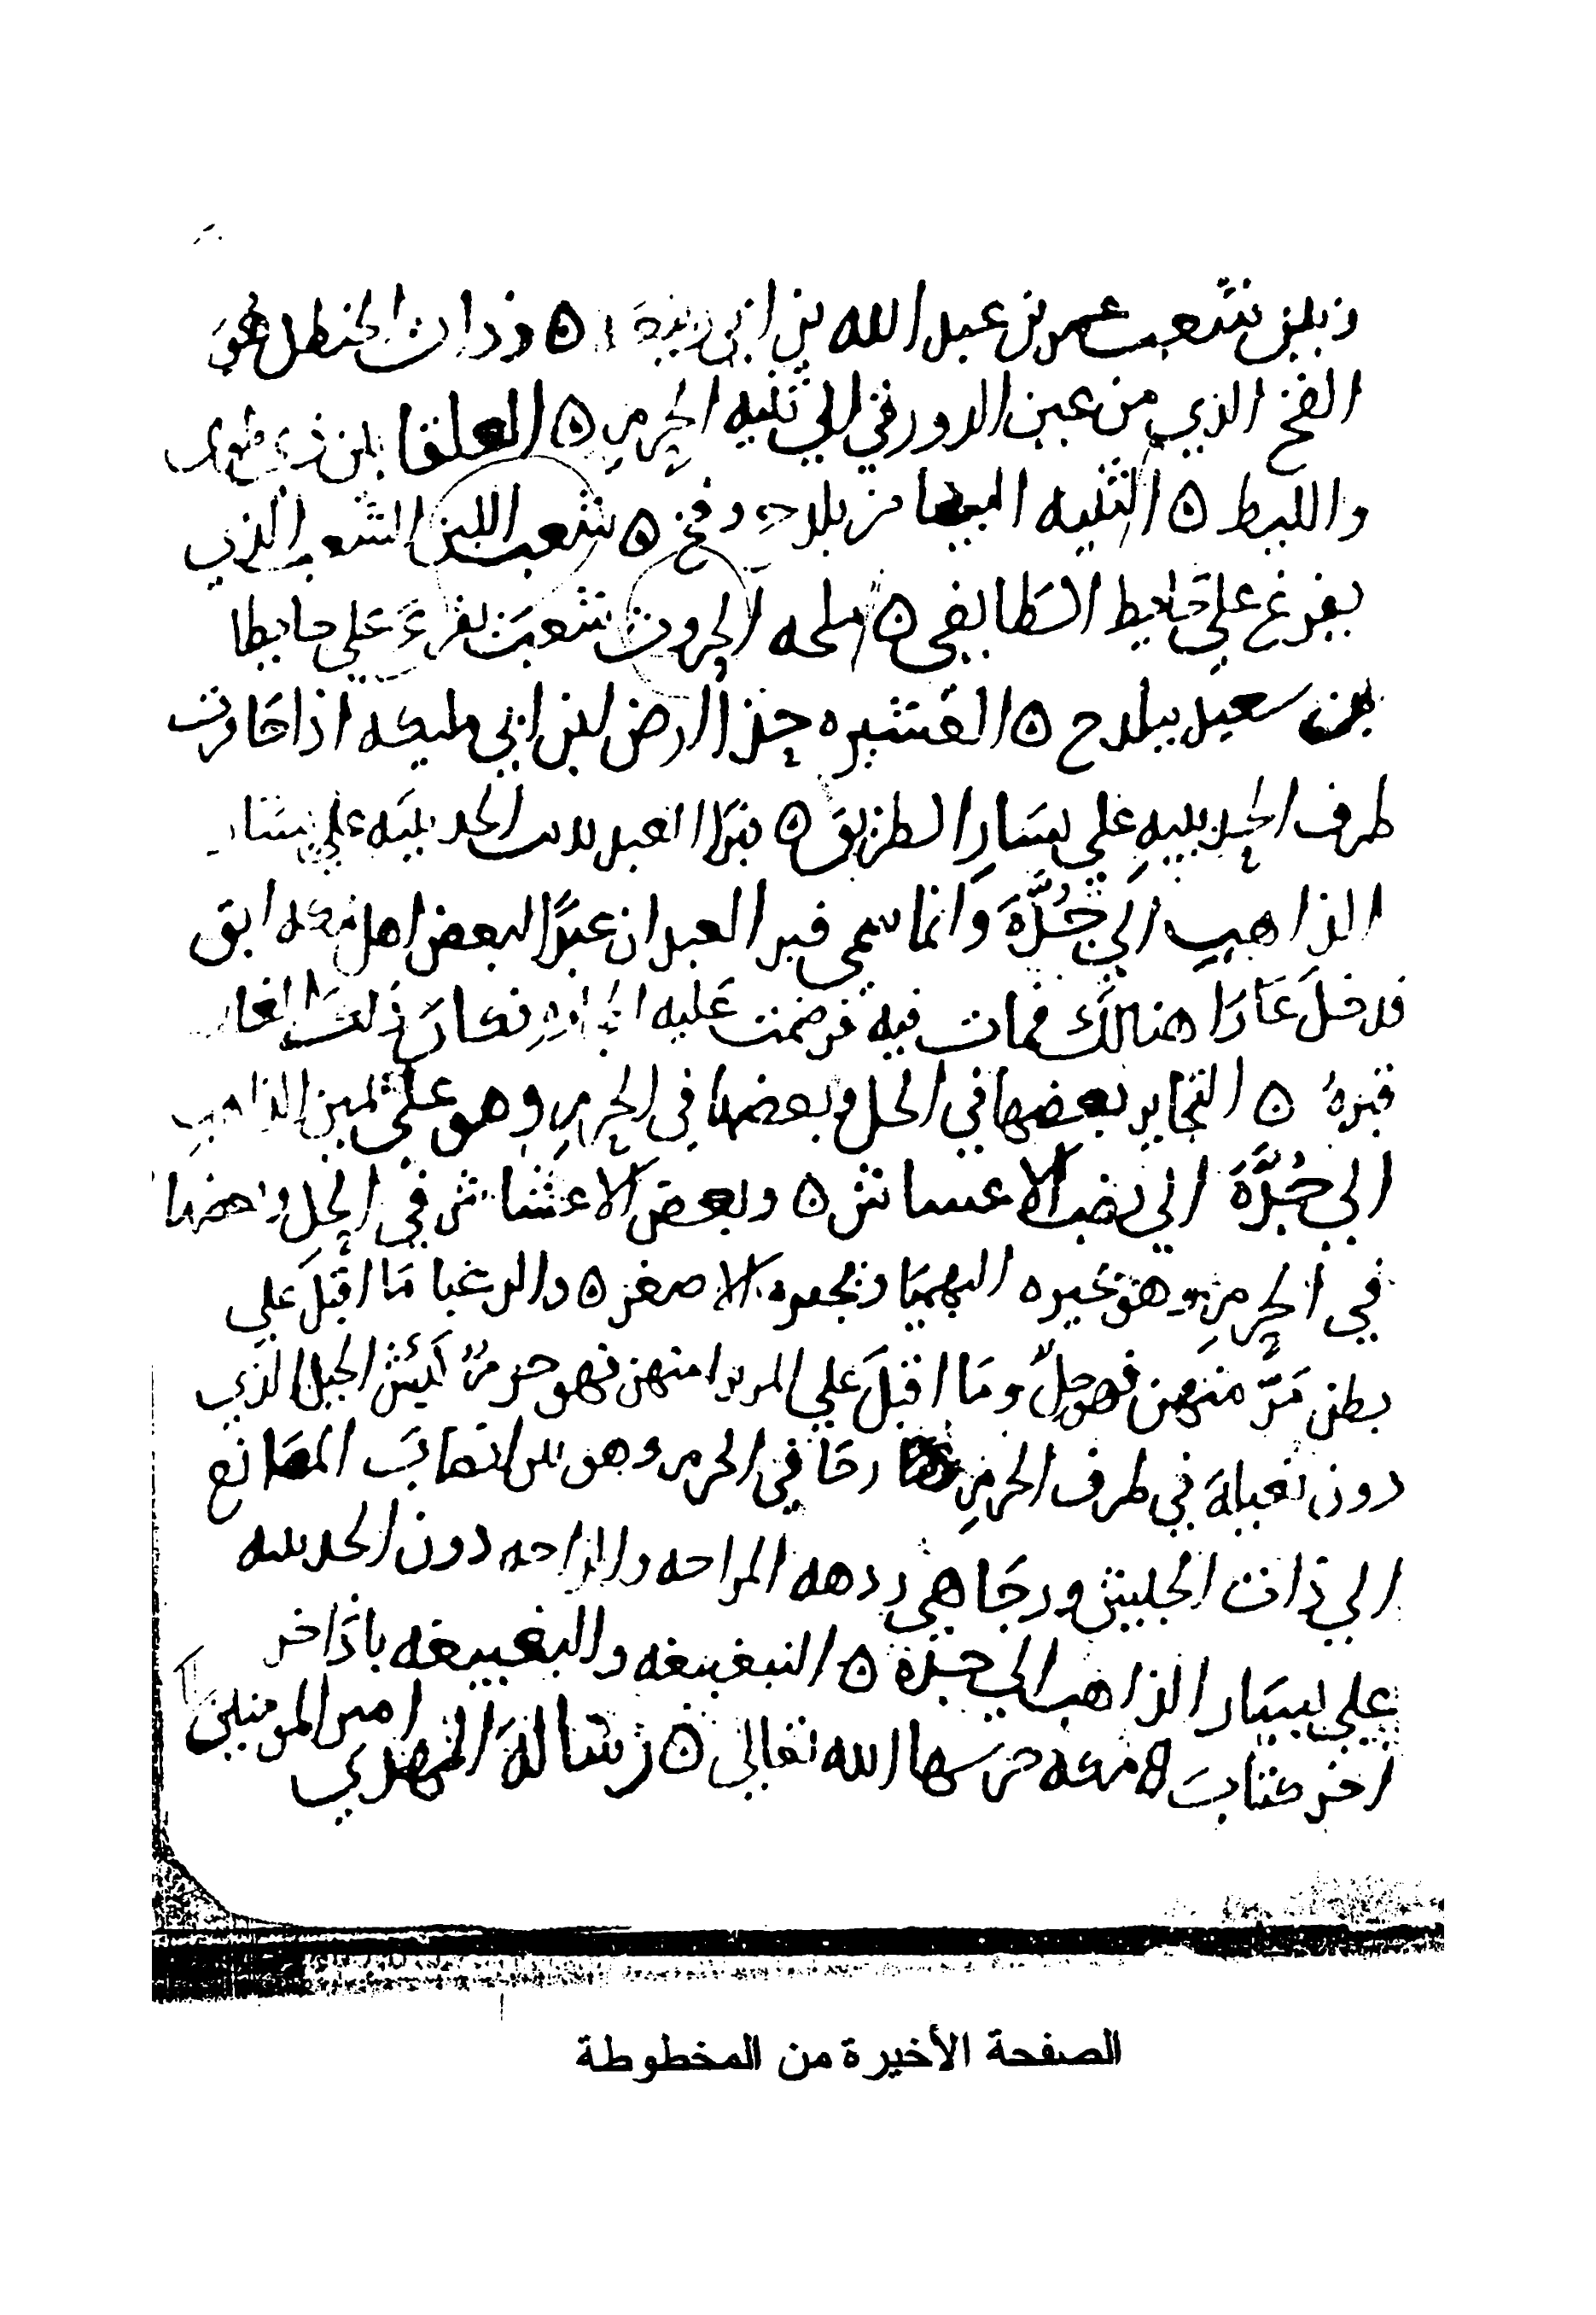 وبين شعب عمر بن عبد الله بن ابي ربيعة ٥ وذات الحنظل هو
الفخ الذي من عين الدورقي الي ثنيه الحرم ٥ العلقا بين ذي طوى
والليط ٥ الثنيه البيضا من بلدح وفخ ٥ شعب اللبن الشعب الذي
يفرغ علي حايط الطايفي ٥ ملحه الحروث شعب يفرع علي حايط
بن سعيد ببلدح ٥ القشيره حذ ارض ابن ابي مليكه اذا جاوزت
طرف الحديبيه علي يسار الطريق ٥ قبر العبد بذنب الحديبيه علي يسار
الذاهب الي جُدَّة وانما سمي قبر العبد ان عبدًا لبعض اهل مكه ابق
فدخل غارا هنالك فمات فيه فرضمت عليه الحجاره فكان ذلك الغار
قبره ٥ التخابر بعضها في الحل وبعضها في الحرم وهو علي يمين الذاهب
الي جُدَّة الي نصب الاعشاش ٥ وبعض الاعشاش في الحل وبعضها
في الحرم وهو بحيره البهيما وبحيره الاصفر ٥ والرغبا ما اقبل علي
بطن مَرّ منهن فهو حِلّ وما اقبل علي المريرا منهن فهو حرم الجبل الذي
دون نعيلة في طرف الحرم رحا في الحرم وهو بين انصاب المصانع
الي ذات الجليش ورحا هي ردهه الراحه والراحه دون الحديبيه
علي يسار الذاهب الي جدة ٥ النبغبغه والبغيبغه باذاخر
اخر كتاب مكه حرسها الله تعالى ٥ رسالة المهدي امير المومنين
الصفحة الأخيرة من المخطوطة